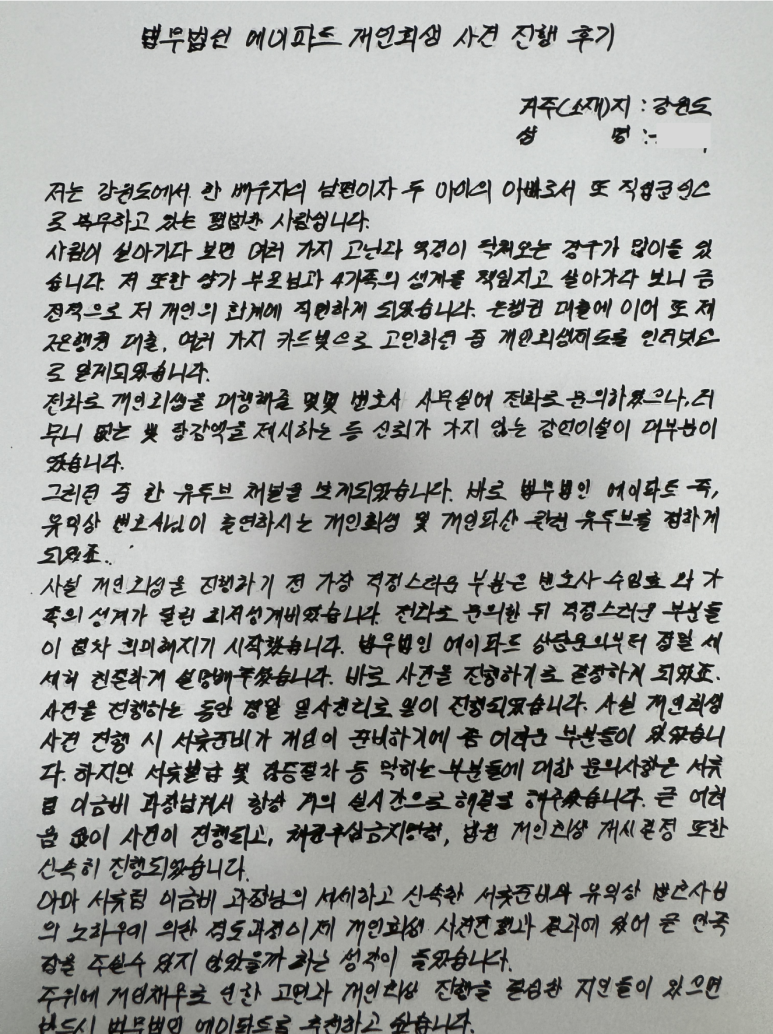 법무법인 에이파트 개인회생 사건 진행 후기
거주(소재)지 : 강원도
성 명 :
저는 강원도에서 한 배우자의 남편이자 두 아이의 아빠로서 또 직업군인으
로 복무하고 있는 평범한 사람입니다.
사람이 살아가다 보면 여러 가지 고난과 역경이 닥쳐오는 경우가 많이들 있
습니다. 저 또한 양가 부모님과 4가족의 생계를 책임지고 살아가다 보니 금
전적으로 저 개인의 한계에 직면하게 되었습니다. 은행권 대출에 이어 또 제
2은행권 대출, 여러 가지 카드빚으로 고민하던 중 개인회생제도를 인터넷으
로 알게되었습니다.
전화로 개인회생을 대행해줄 몇몇 변호사 사무실에 전화로 문의하였으나, 터
무니 없는 빚 탕감액을 제시하는 등 신뢰가 가지 않는 감언이설이 대부분이
었습니다.
그러던 중 한 유투브 채널을 보게되었습니다. 바로 법무법인 에이파트 즉,
유익상 변호사님이 출연하시는 개인회생 및 개인파산 관련 유투브를 접하게
되었죠.
사실 개인회생을 진행하기 전 가장 걱정스러운 부분은 변호사 수임료 와 가
족의 생계가 달린 최저생계비였습니다. 전화로 문의한 뒤 걱정스러운 부분들
이 점차 희미해지기 시작했습니다. 법무법인 에이파트 상담문의부터 정말 세
세히 친절하게 설명해주셨습니다. 바로 사건을 진행하기로 결정하게 되었죠.
사건을 진행하는 동안 정말 일사천리로 일이 진행되었습니다. 사실 개인회생
사건 진행 시 서류준비가 개인이 준비하기에 좀 어려운 부분들이 있었습니
다. 하지만 서류발급 및 검증절차 등 막히는 부분들에 대한 문의사항은 서류
팀 이금비 과장님께서 항상 거의 실시간으로 해결을 해주셨습니다. 큰 어려
움 없이 사건이 진행되고, 채권추심금지명령, 법원 개인회생 개시결정 또한
신속히 진행되었습니다.
아마 서류팀 이금비 과장님의 세세하고 신속한 서류준비와 유익상 변호사님
의 노하우에 의한 검토과정이 제 개인회생 사건진행과 결과에 있어 큰 만족
감을 주실수 있지 않았을까 하는 생각이 들었습니다.
주위에 개인채무로 인한 고민과 개인회생 진행을 결심한 지인들이 있으면
반드시 법무법인 에이파트를 추천하고 싶습니다.